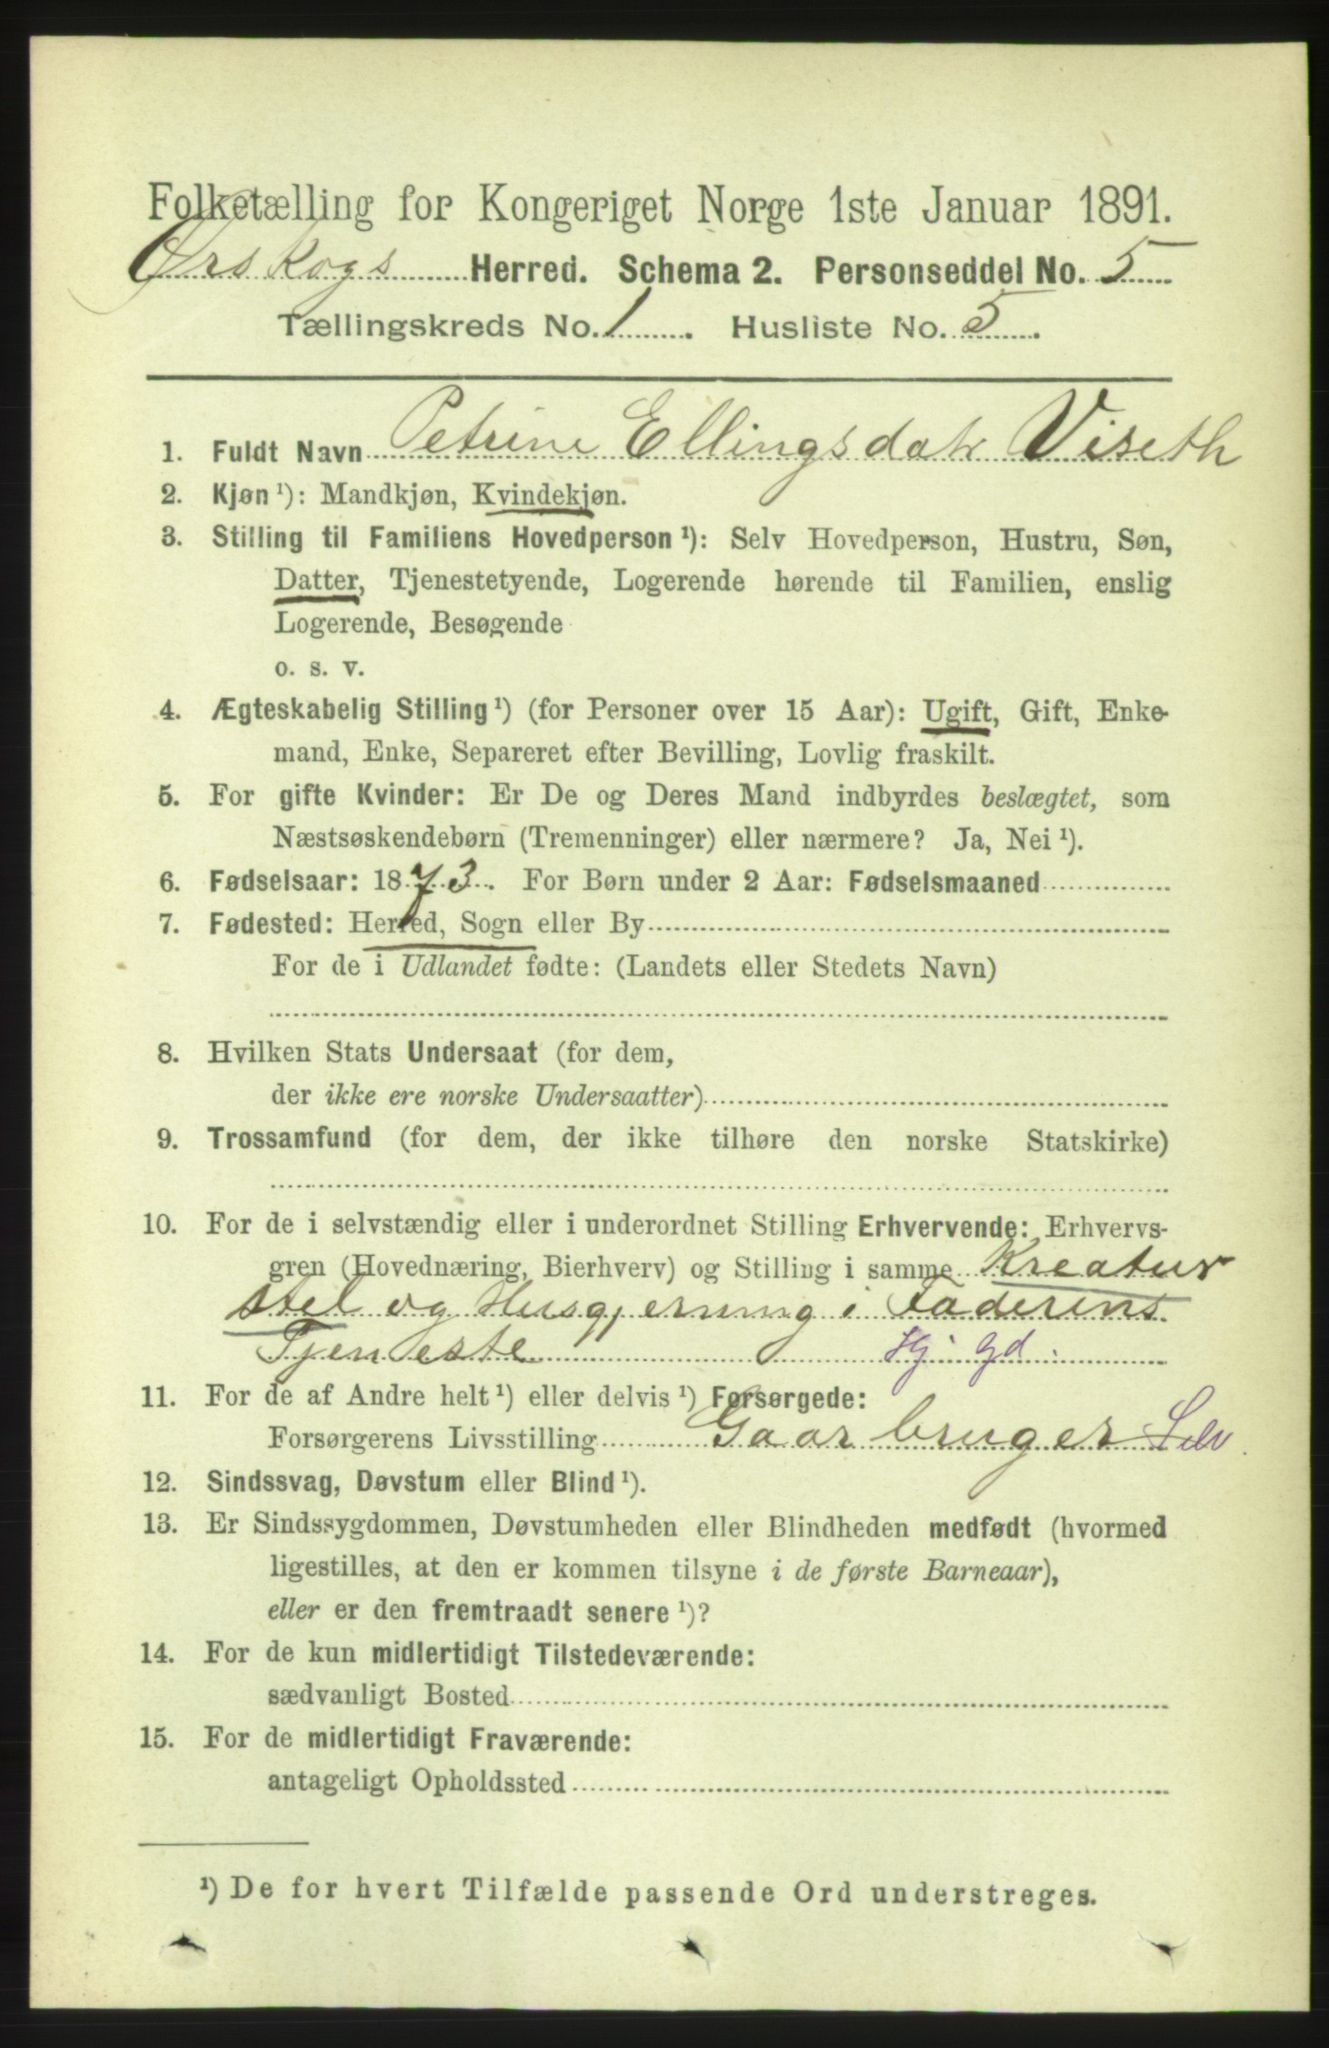 Folketælling for Kongeriget Norge 1ste Januar 1891.
Ørskogs Herred. Schema 2. Personseddel No. 5
Tællingskreds No. 1. Husliste No. 5.
1. Fuldt Navn Petrine Ellingsdatr Viseth
2. Kjøn ¹): Mandkjøn, Kvindekjøn.
3. Stilling til Familiens Hovedperson ¹): Selv Hovedperson, Hustru, Søn,
Datter, Tjenestetyende, Logerende hørende til Familien, enslig
Logerende, Besøgende
o. s. v.
4. Ægteskabelig Stilling ¹) (for Personer over 15 Aar): Ugift, Gift, Enke-
mand, Enke, Separeret efter Bevilling, Lovlig fraskilt.
5. For gifte Kvinder: Er De og Deres Mand indbyrdes beslægtet, som
Næstsøskendebørn (Tremenninger) eller nærmere? Ja, Nei ¹).
6. Fødselsaar: 1873. For Børn under 2 Aar: Fødselsmaaned
7. Fødested: Herred, Sogn eller By
For de i Udlandet fødte: (Landets eller Stedets Navn)
8. Hvilken Stats Undersaat (for dem,
der ikke ere norske Undersaatter)
9. Trossamfund (for dem, der ikke tilhøre den norske Statskirke)
10. For de i selvstændig eller i underordnet Stilling Erhvervende: Erhvervs-
gren (Hovednæring, Bierhverv) og Stilling i samme Kreatur
stel og Husgjerning i Faderens
Tjeneste Hj gd.
11. For de af Andre helt ¹) eller delvis ¹) Forsørgede:
Forsørgerens Livsstilling Gaarbruger Selv
12. Sindssvag, Døvstum eller Blind ¹).
13. Er Sindssygdommen, Døvstumheden eller Blindheden medfødt (hvormed
ligestilles, at den er kommen tilsyne i de første Barneaar),
eller er den fremtraadt senere ¹)?
14. For de kun midlertidigt Tilstedeværende:
sædvanligt Bosted
15. For de midlertidigt Fraværende:
antageligt Opholdssted
¹) De for hvert Tilfælde passende Ord understreges.